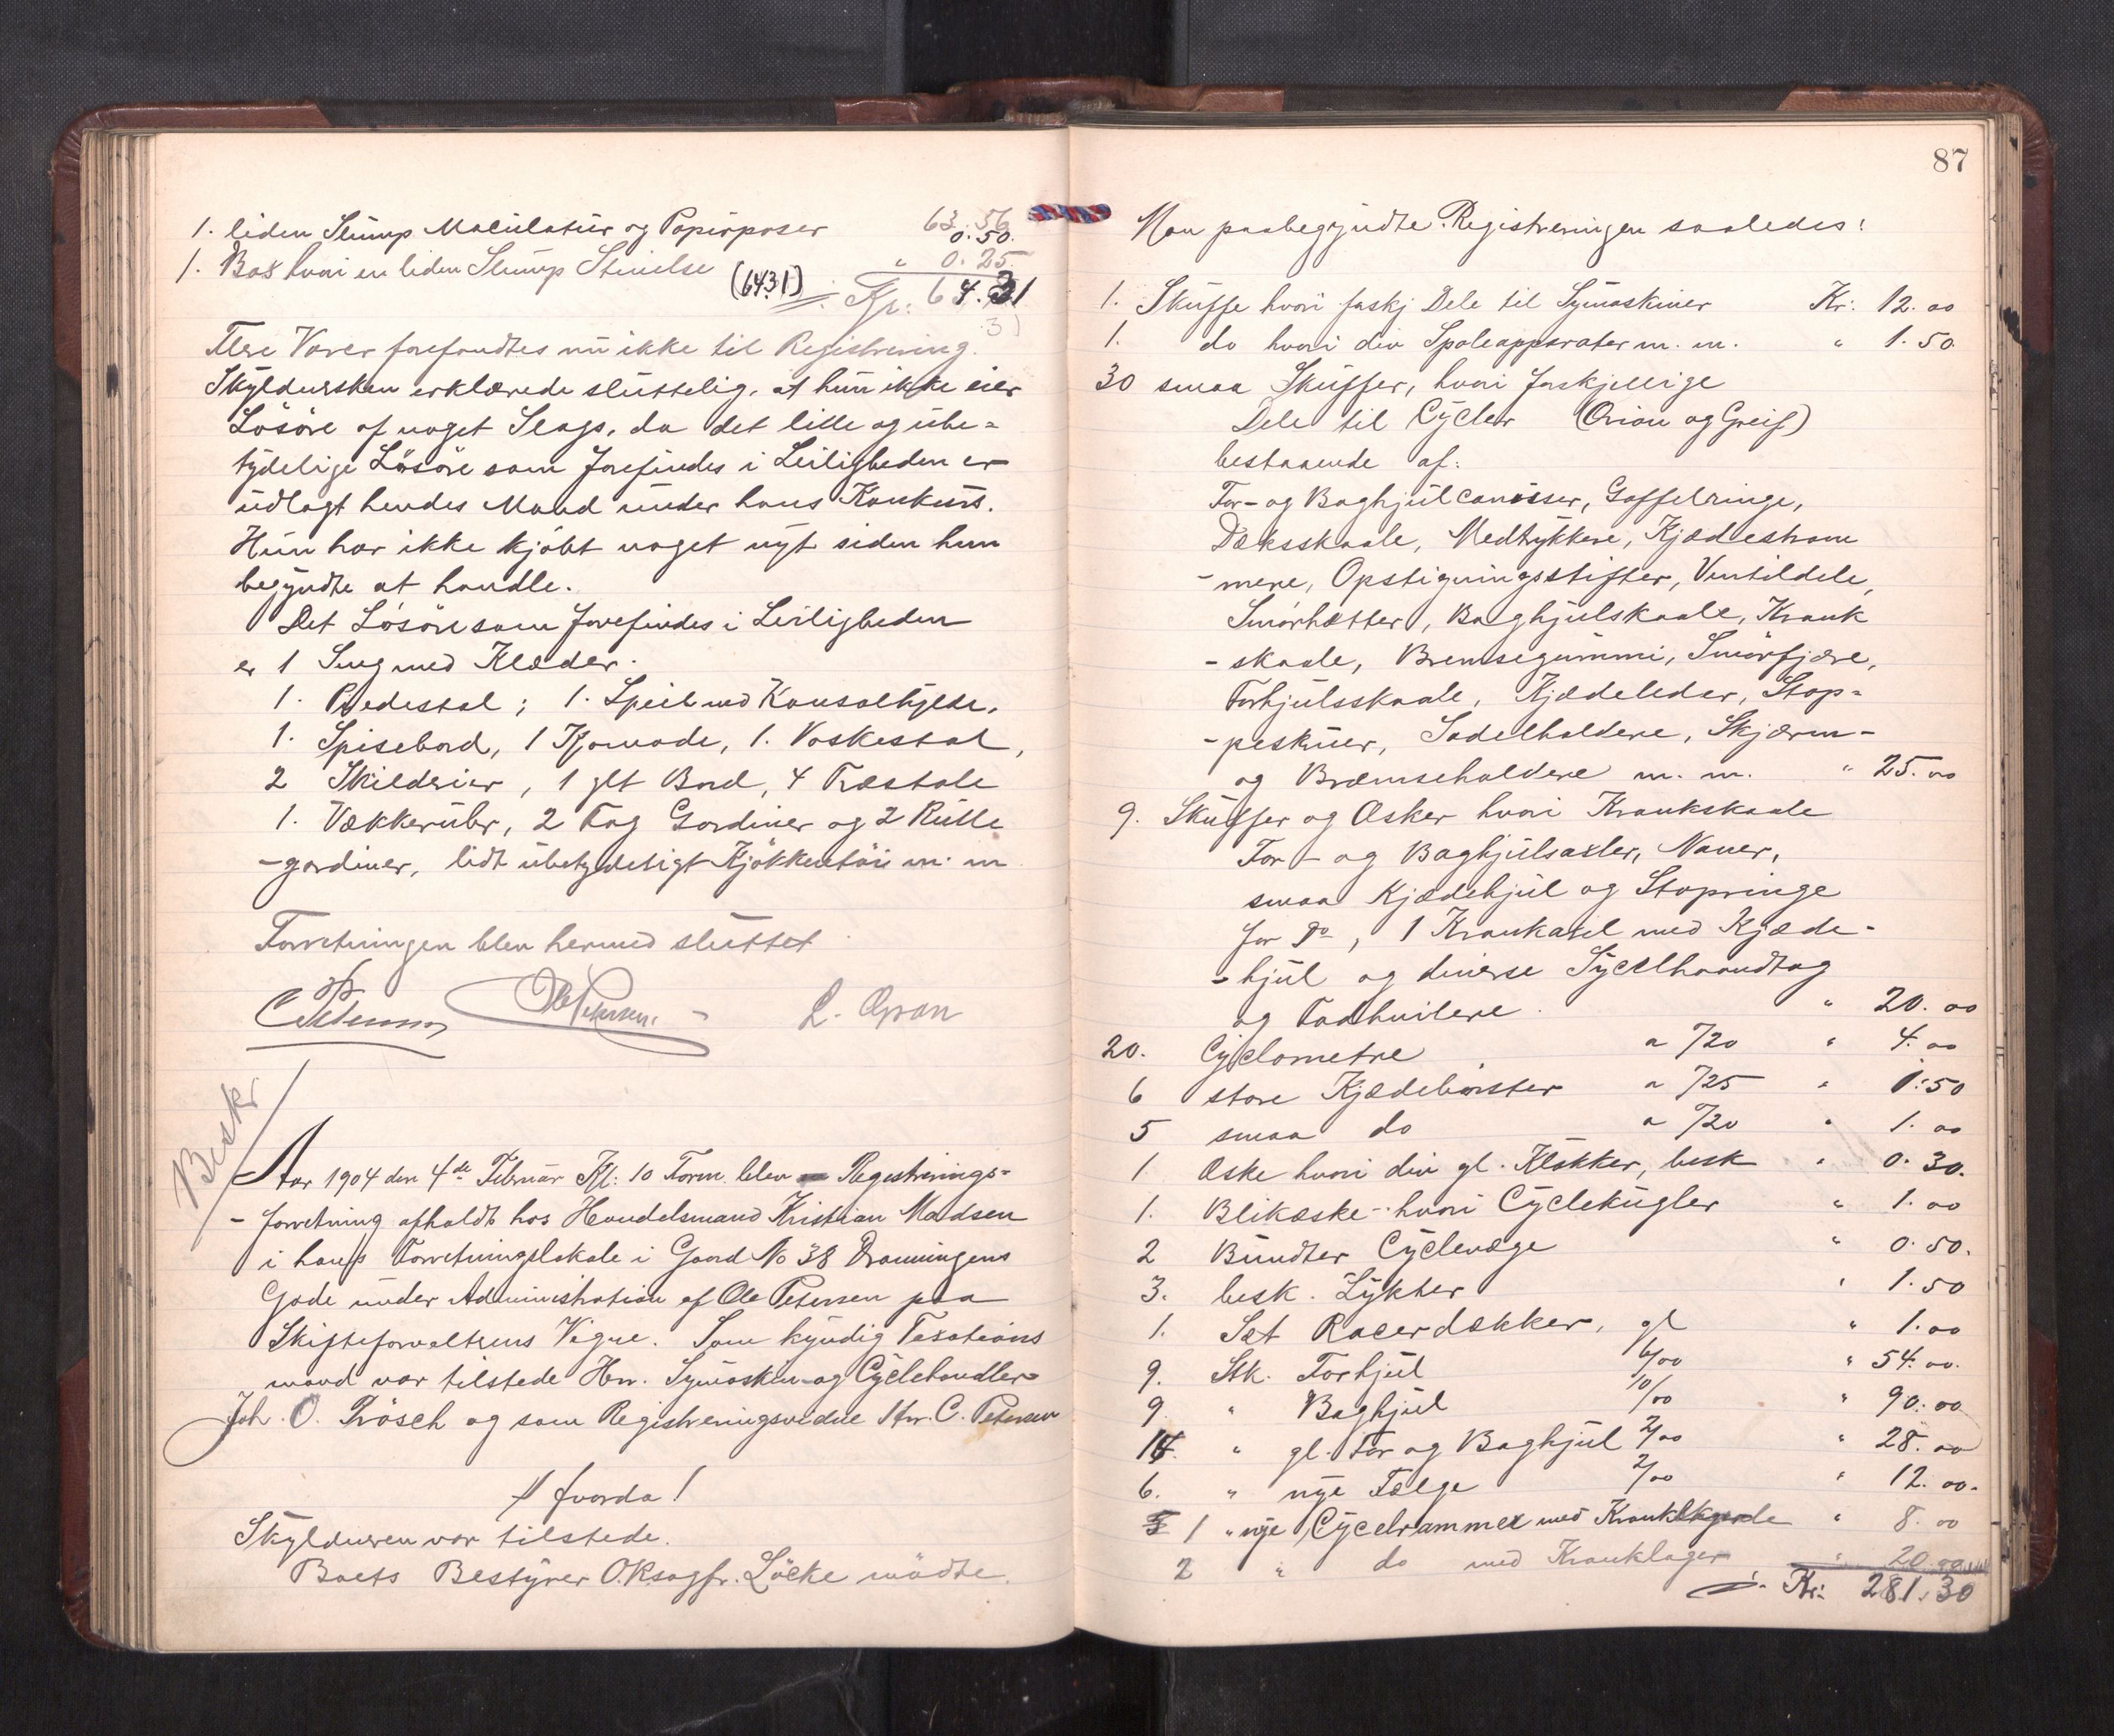 63.56
1. liden Slump Maculatur og Papirposer 0.50.
1. Bax hvori en liden Slump Stivelse " 0.25.
(64.31) Kr: 64.31
Flere Varer forefandtes nu ikke til Registrering.
Skyldnersken erklærede sluttelig, at hun ikke eier
Lösöre af noget Slags, da det lille og ube=
tydelige Lösöre som forefindes i Leiligheden er
udlagt hendes Mand under hans Konkurs.
Hun har ikke kjöbt noget nyt siden hun
begyndte at handle.
Det Lösöre som forefindes i Leiligheden
er 1 Seng med Klæder.
1. Pedestal; 1. Speil med Konsolhylde,
1. Spisebord, 1 Komode, 1. Vaskestol,
2 Skilderier, 1 glt Bord, 4 Træstole
1. Vækkerubr, 2 Fag Gardiner og 2 Rulle
-gardiner, lidt ubetydeligt Kjökkentöi m. m
Forretningen blev hermed sluttet
C Petersen Ole Petersen. L. Gran
Beskr
Aar 1904 den 4de Februar Kl: 10 Form. blev Registrerings=
- forretning afholdt hos Handelsmand Kristian Madsen
i hans Forretningslokale i Gaard No 38 Dronningens
Gade under Administration af Ole Petersen paa
Skifteforvalterens Vegne. Som kyndig Taxations
mand var tilstede Hrr. Symaskin- og Cyclehandler
Joh. O. Frösch og som Registreringsvidne Hrr. C. Petersen
Hvorda!
Skyldneren var tilstede.
Boets Bestyrer O.Rsagfr. Löcke mödte.
87
Man paabegyndte Registreringen saaledes:
1. Skuffe hvori forskj Dele til Symaskiner Kr: 12.00
1. do hvori div Spoleapparater m. m. " 1.50
30 smaa Skuffer, hvori forskjellige
Dele til Cycler (Orion og Greif)
bestaaende af:
For- og Baghjulconusser, Gaffelringe,
Dæksskaale, Medtrykkere, Kjædestram
-mere, Opstigningsstifter, Ventildele,
Smörhætter, Baghjulskaale, Krank
-skaale, Bremsegummi, Smörfjære,
Forhjulsskaale, Kjædeleder, Stop=
-peskruer, Sadelholdere, Skjærm-
og Bræmseholdere m. m. " 25.00
9. Skuffer og Æsker hvori Krankskaale
For- og Baghjulsaxler, Naver,
smaa Kjædehjul og Stopringe
for Do, 1 Krankaxel med Kjæde-
-hjul og diverse Sycelhaandtag
og Fodhvilere " 20.00
20. Cyclometre a /20 " 4.00
6 store Kjædebörster a /25 " 1.50
5 smaa do a /20 " 1.00
1 Æske hvori div gl. Klokker, besk " 0.30.
1. Blikæske hvori Cyclekugler " 1.00
2 Bundter Cyclevæge " 0.50.
3. besk. Lykter " 1.50
1. Sæt Racerdækker, gl " 1.00
9. Stk. Forhjul 6/00 " 54.00.
9 " Baghjul 10/00 " 90.00
14 " gl. For og Baghjul 2/00 " 28.00
6. " nye Fælge 2/00 " 12.00.
1 " nye Cycelramme med " 8.00
2 " do med Kranklager " 20.00
Kr: 281.30